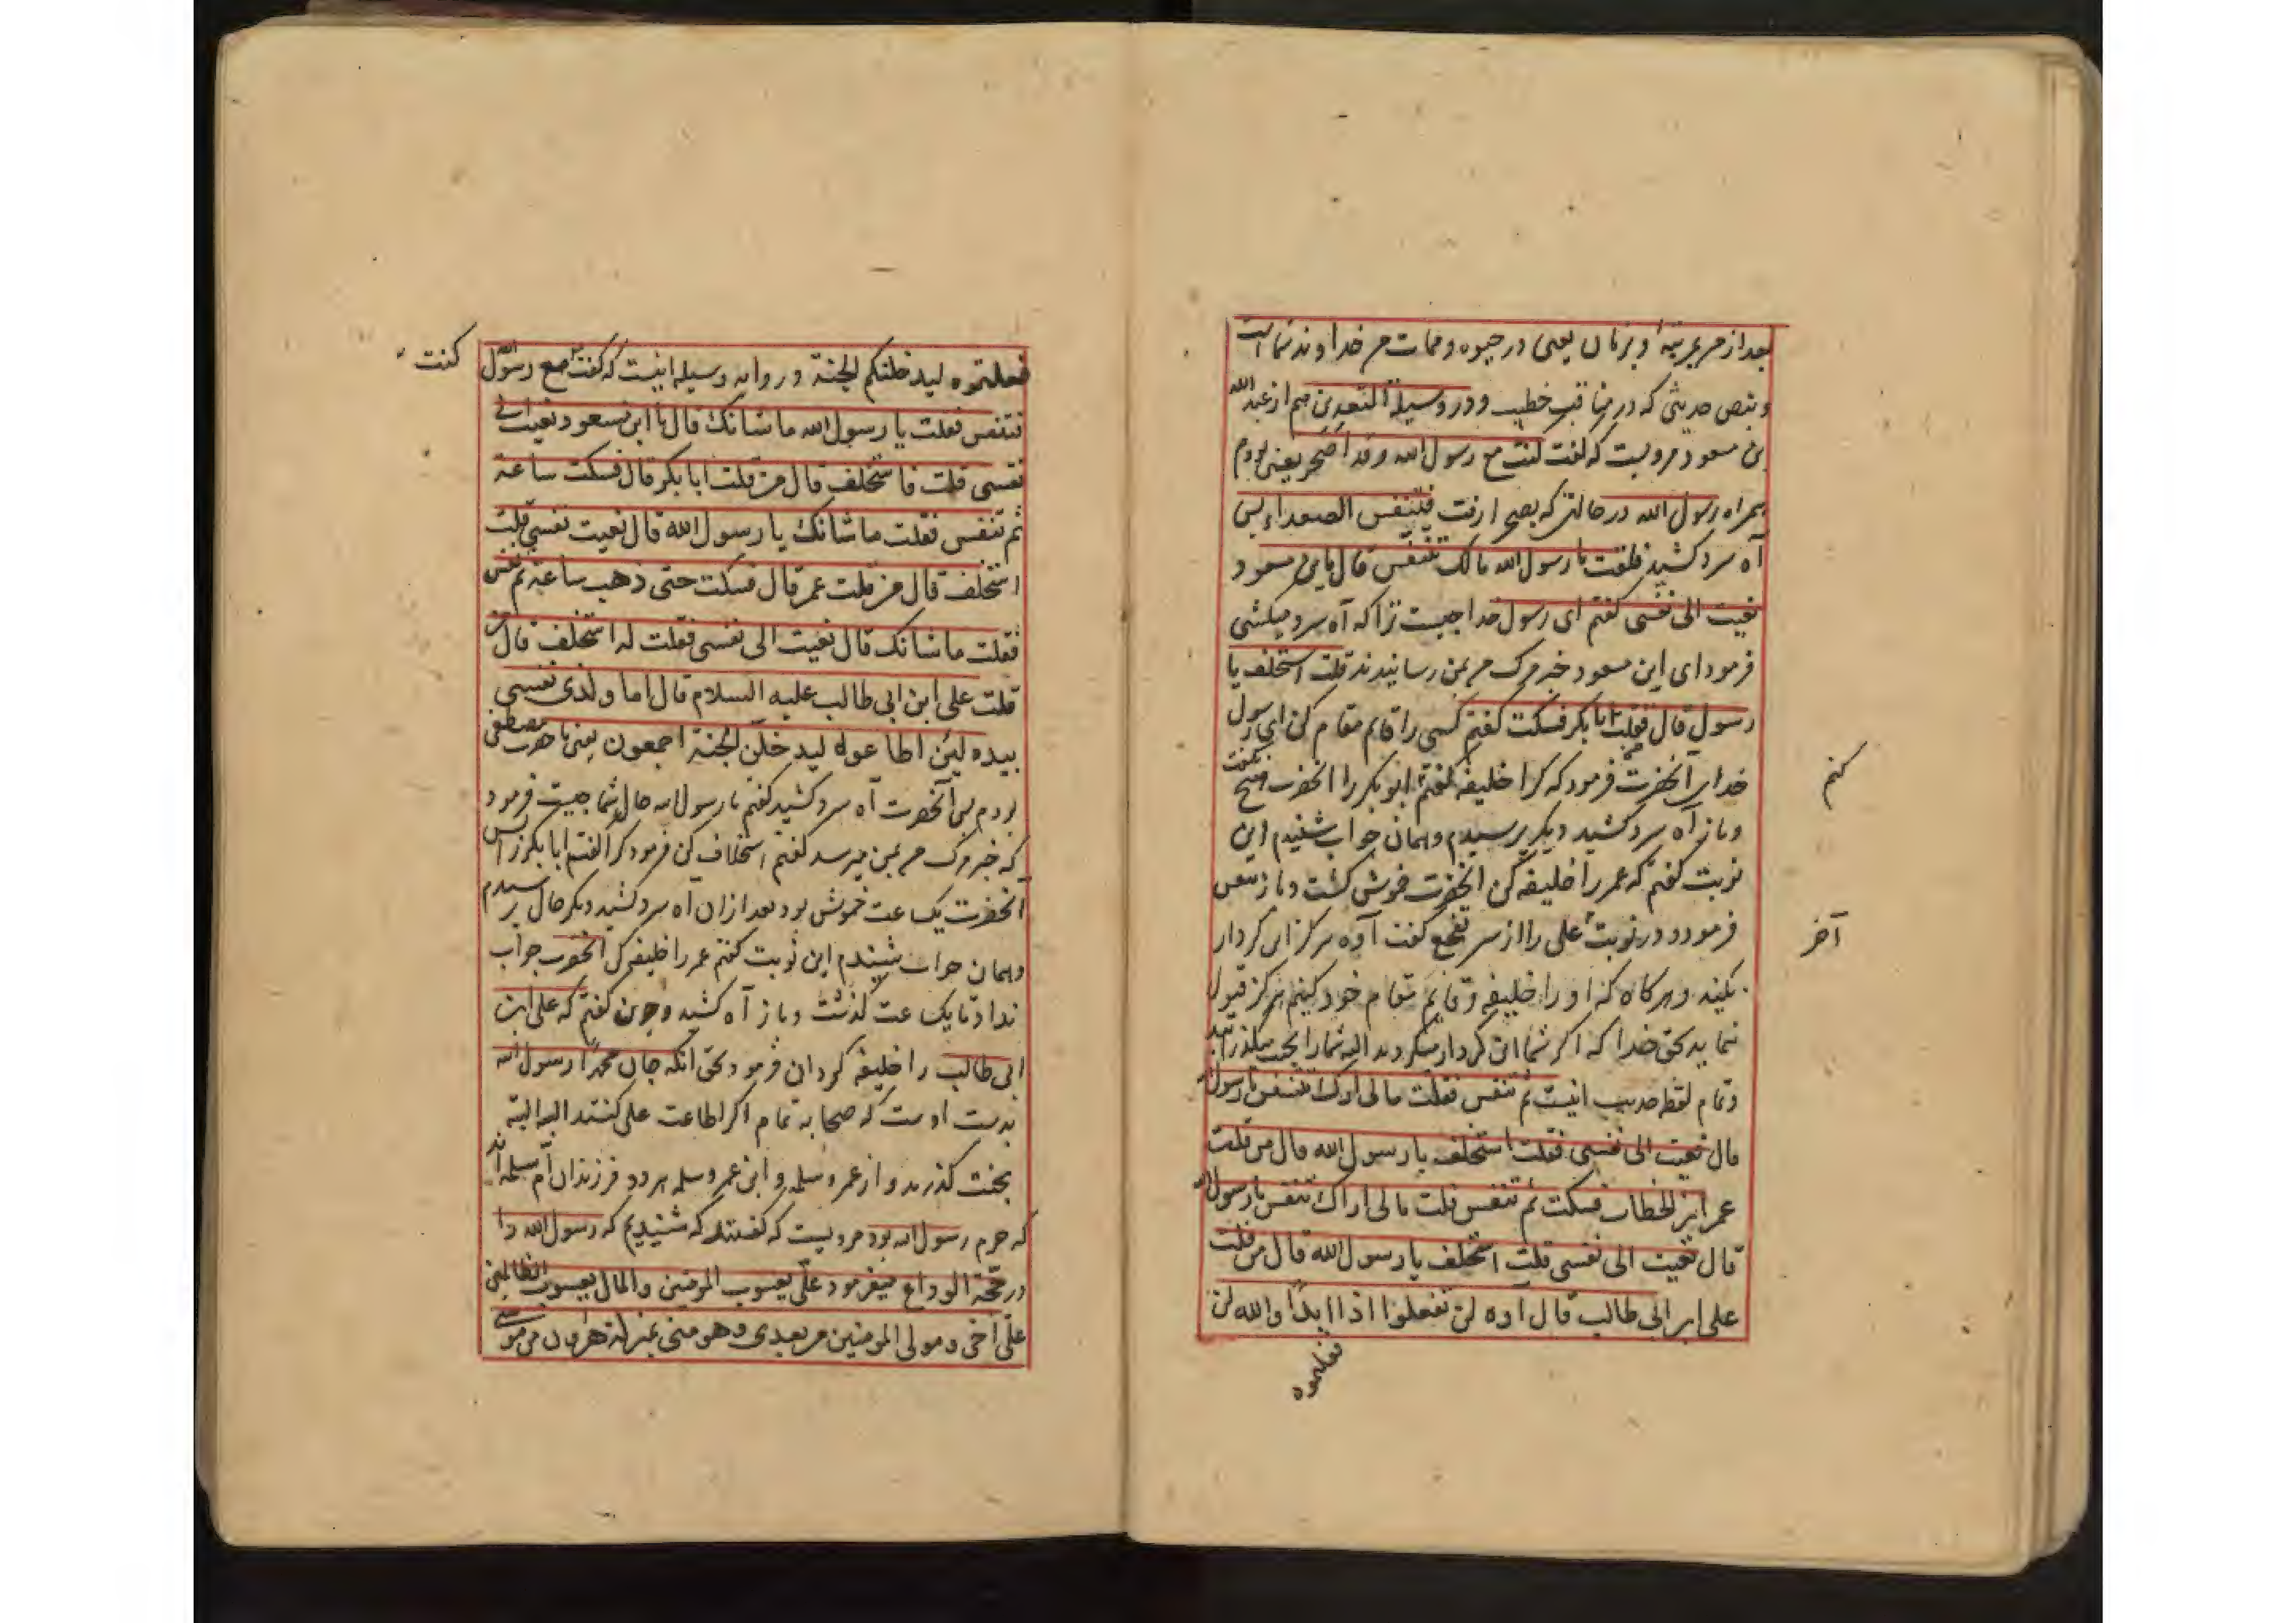 بعد از من بمرتبۀ و برتان یعنی در حیوه و ممات من خداوند شماست
و بنص حدیثی که در مناقب خطیب و در وسیلة المتعبدین هم از عبد الله
بن مسعود مرویست که گفت کنت مع رسول الله و قد اصحر یعنی بودم
همراه رسول الله در حالتی که بصحرا رفت فتنفس الصعداء پس
آه سرد کشید فقلت یا رسول الله مالک تتنفس قال یا بن مسعود
نعیت الی نفسی گفتم ای رسول خدا چیست ترا که آه سرد میکشی
فرمود ای ابن مسعود خبر مرگ من بمن رسانیدند قلت استخلف یا
رسول قال من قلت ابا بکر فسکت گفتم کسی را قایم مقام کن ای رسول
خدا پس آنحضرت فرمود که کرا خلیفه کنم گفتم ابو بکر را آنحضرت هیچ نگفت
کنم
و باز آه سرد کشید دیگر پرسیدم و همان جواب شنیدم این
نوبت گفتم که عمر را خلیفه کن آنحضرت خموش گشت و باز تنفس
فرمود و در نوبت علی را از سر تفجع گفت آوه هرگز این کردار
آخر
نکنید و هر گاه که او را خلیفه و قایم مقام خود کنیم هرگز قبول
نمایید بحق خدا که اگر شما این کردار میکردید البه شما را بجنت میگذرانید
و تمام لفظ حدیث اینست ثم تنفس فقلت ما لی اراک تتنفس یا رسول الله
قال نعیت الی نفسی فقلت استخلف یا رسول الله قال من قلت
عمر ابن الخطاب فسکت ثم تنفس قلت ما لی اراک تتنفس یا رسول الله
قال نعیت الی نفسی قلت استخلف یا رسول الله قال من قلت
علی ابن ابی طالب قال آوه لن تفعلوا اذا ابدا والله لئن
فعلتموه
فعلتموه لیدخلنکم الجنة و روایه وسیله اینست که گفت مع رسول الله
کنت
فتنفس فقلت یا رسول الله ما شانک قال یا ابن مسعود نعیت الی
نفسی قلت فاستخلف قال من قلت ابا بکر قال فسکت ساعة
ثم تنفس فقلت ما شانک یا رسول الله قال نعیت نفسی قلت
استخلف قال من قلت عمر قال فسکت حتی ذهب ساعة ثم تنفس
فقلت ما شانک قال نعیت الی نفسی فقلت له استخلف قال من
قلت علی ابن ابی طالب علیه السلام قال اما والذی نفسی
بیده لئن اطاعوه لیدخلن الجنة اجمعون یعنی با حضرت مصطفی
بودم پس آنحضرت آه سرد کشید گفتم یا رسول الله حال شما چیست فرمود
که خبر مرگ من بمن میرسد گفتم استخلاف کن فرمود کرا گفتم ابا بکر را پس
آنحضرت یک ساعت خموش بود بعد از ان آه سرد کشید دیگر حال پرسیدم
و همان جواب شنیدم این نوبت گفتم عمر را خلیفه کن آنحضرت جواب
نداد تا یک ساعت گذشت و باز آه کشید و چون گفتم که علی ابن
ابی طالب را خلیفه گردان فرمود بحق آنکه جان محمد رسول الله
بدست اوست که صحابه تمام اگر اطاعت علی کنند البه البته
بجنت گذرند و از عمر و سلمه و ابن عمر و سلمه هر دو فرزندان ام سلمه اند
که حرم رسول الله بود مرویست که گفتند که شنیدیم که رسول الله را
در حجة الوداع میفرمود علی یعسوب المومنین والمال یعسوب الظالمین
علی اخی و مولی المومنین من بعدی و هو منی بمنزلة هرون من موسی